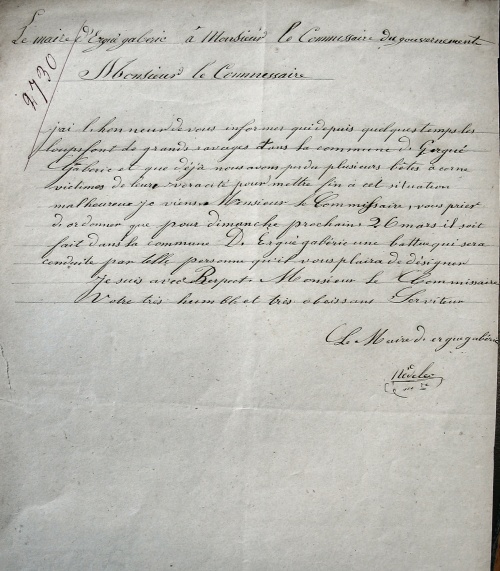 Le maire d'Ergué gaberic à Monsieur le Commissaire du gouvernement
2730
Monsieur le Commissaire
j'ai lhonneur de vous informer qui depuis quelques temps les
loups font de grands ravages dans la commune de Gergué
Gaberic et que déjà nous avons perdu plusieurs bêtes a corne
victimes de leur voracité pour mettre fin à cet situation
malheureux je viens Monsieur le Commissaire, vous prier
d'ordonner que pour dimanche prochain 26 mars il soit
fait dans la commune De Ergué gabéric une battue qui sera
conduite par telle personne qu'il vous plaira de désigner
Je suis avec Respect Monsieur le Commissaire
Votre très humble et très obeissant Serviteur
Le Maire de ergue gabéric